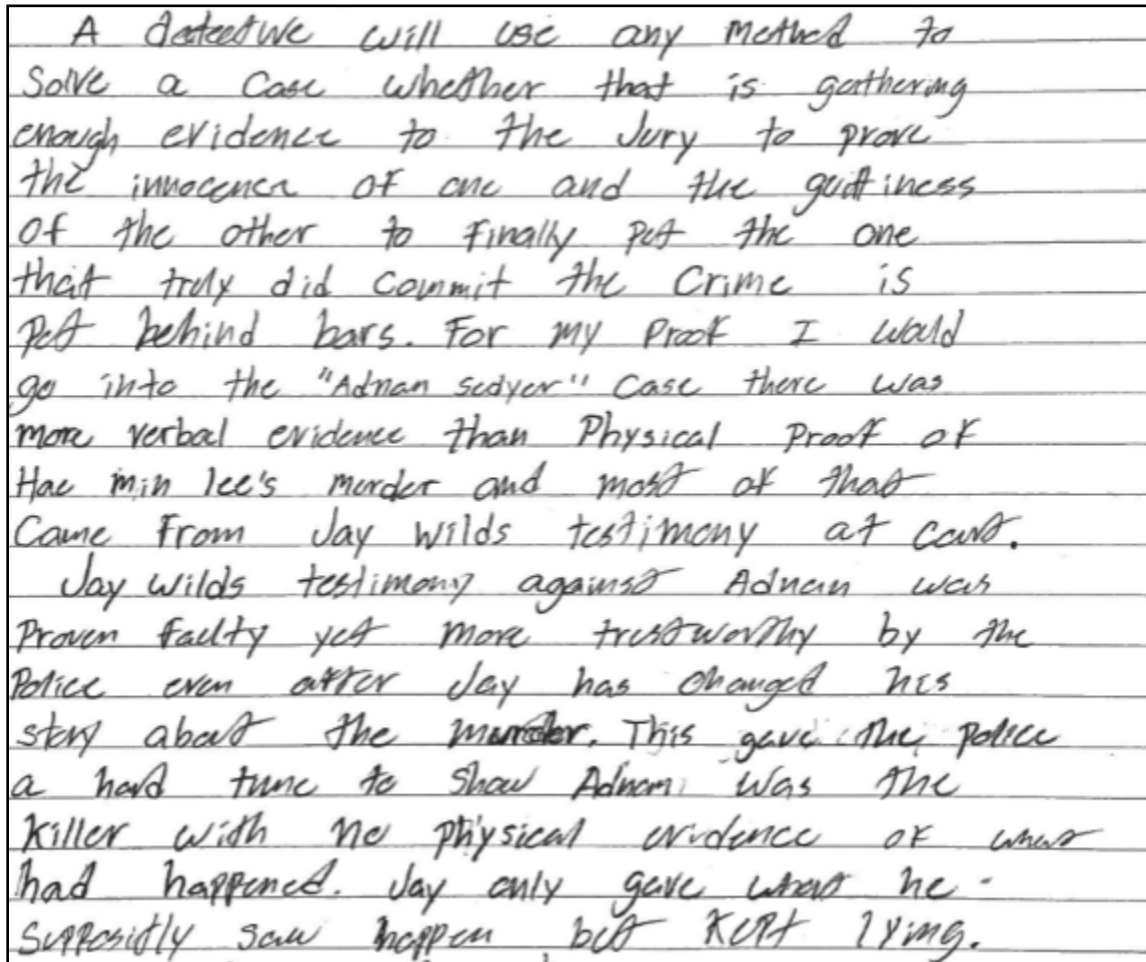 A detective will use any method to
Solve a Case whether that is gathering
enough evidence to the Jury to prove
the innocence of one and the guiltiness
of the other to finally put the one
that truly did Commit the Crime is
Put behind bars. For my Proof I would
go into the "Adnan sedyer" Case there was
more verbal evidence than Physical Proof of
Hae min lee's murder and most of that
Came From Jay wilds testimony at court.
Jay wilds testimony against Adnan was
Proven faulty yet more trustworthy by the
Police even after Jay has changed his
story about the murder. This gave the police
a hard time to show Adnan was the
Killer with no physical evidence of what
had happened. Jay only gave what he
Supposidly saw happen but Kept lying.